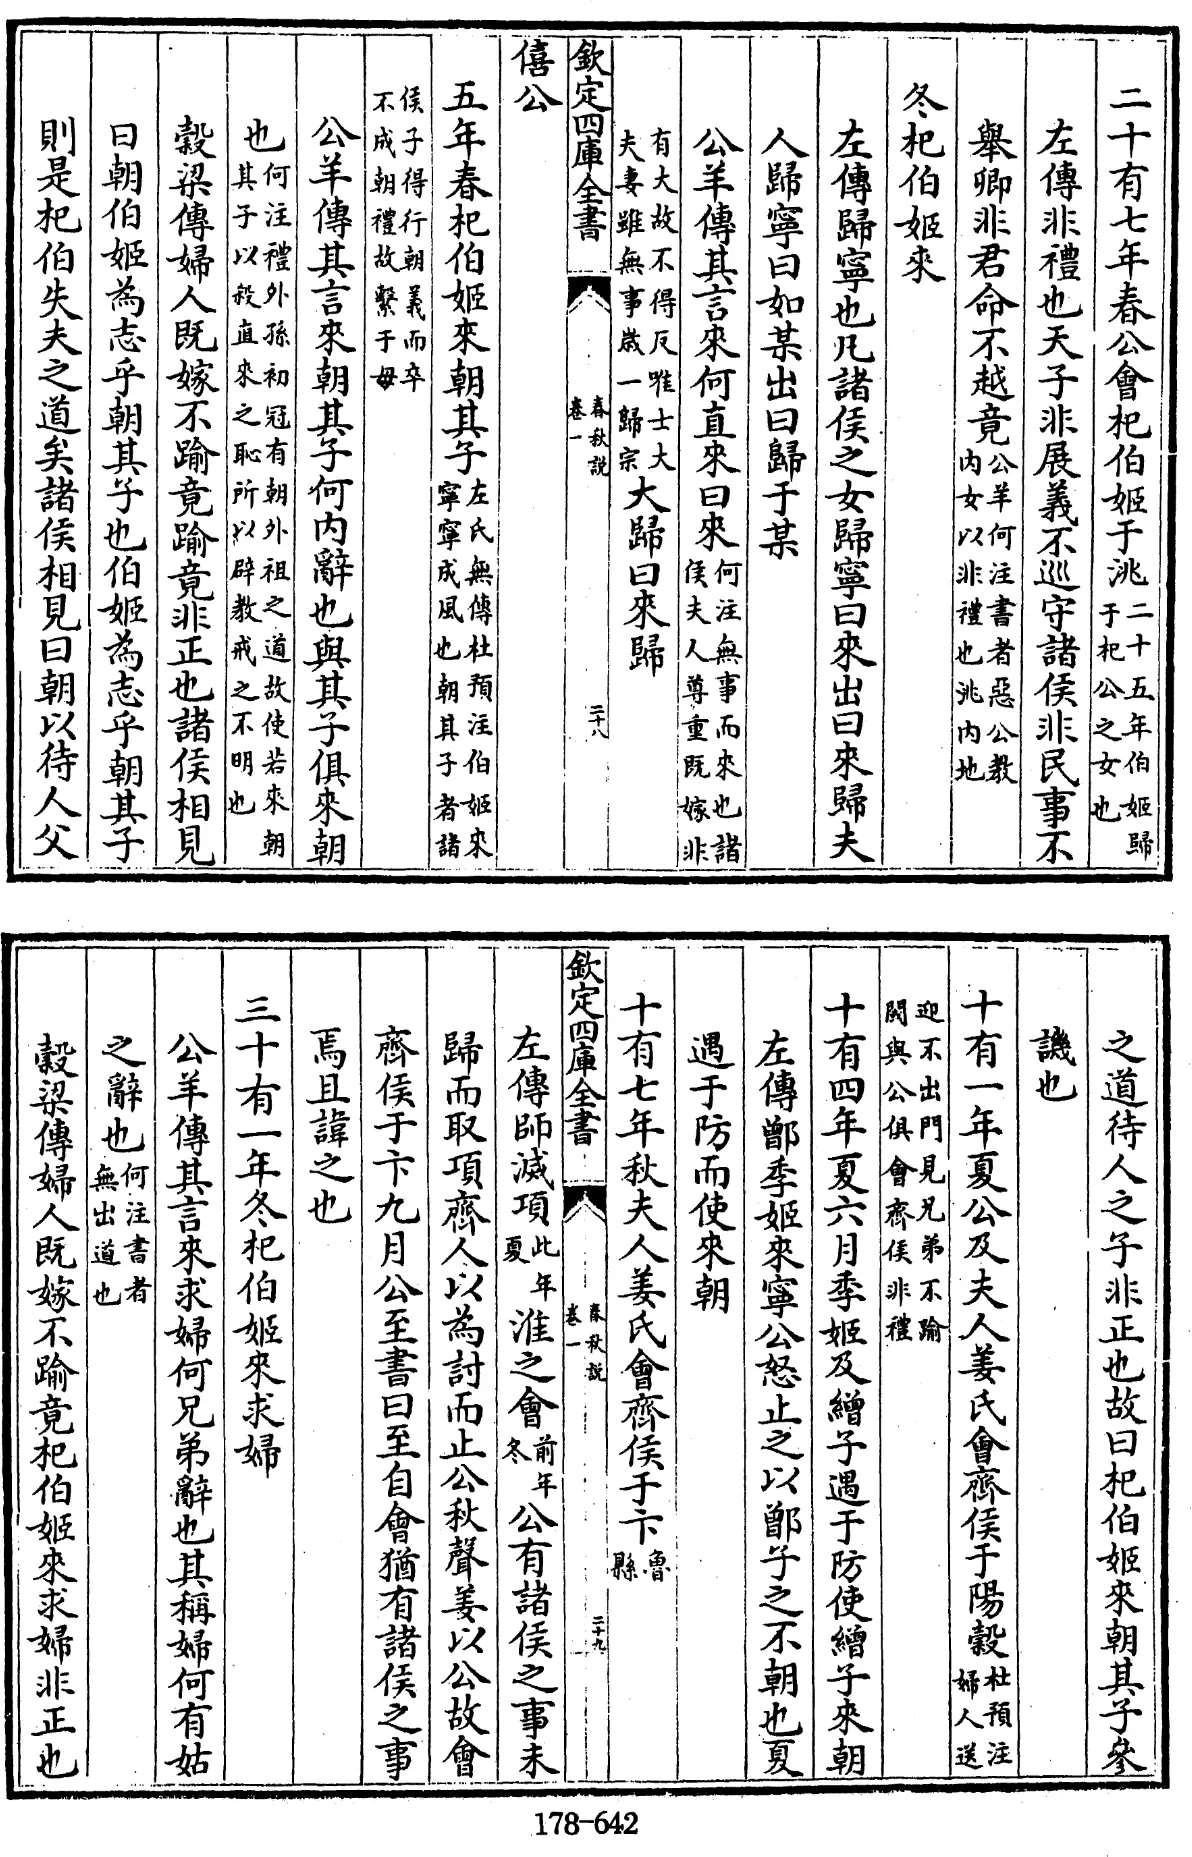 二十有七年春公會杞伯姬于洮二十五年伯姬歸于杞公之女也
左傳非禮也天子非展義不巡守諸侯非民事不
舉卿非君命不越竟公羊何注書者惡公教内女以非禮也洮内地
冬杞伯姬來
左傳歸寧也凡諸侯之女歸寧曰來出曰來歸夫
人歸寧曰如某出曰歸于某
公羊傳其言來何直來曰來何注無事而來也諸侯夫人尊重既嫁非
有大故不得反唯士大夫妻雖無事歲一歸宗大歸曰來歸
欽定四庫全書
春秋説
卷一
二十八
僖公
五年春杞伯姬來朝其子左氏無傳杜預注伯姬來寧寧成風也朝其子者諸
侯子得行朝義而卒不成朝禮故繫于母
公羊傳其言來朝其子何内辭也與其子俱來朝
也何注禮外孫初冠有朝外祖之道故使若來朝其子以殺直來之恥所以辟教戒之不明也
穀梁傳婦人既嫁不踰竟踰竟非正也諸侯相見
曰朝伯姬為志乎朝其子也伯姬為志乎朝其子
則是杞伯失夫之道矣諸侯相見曰朝以待人父
之道待人之子非正也故曰杞伯姬來朝其子參
譏也
十有一年夏公及夫人姜氏會齊侯于陽穀杜預注婦人送
迎不出門見兄弟不踰閾與公俱會齊侯非禮
十有四年夏六月季姬及繒子遇于防使繒子來朝
左傳鄫季姬來寧公怒止之以鄫子之不朝也夏
遇于防而使來朝
十有七年秋夫人姜氏會齊侯于卞魯縣
欽定四庫全書
春秋説
卷一
二十九
左傳師滅項此年夏淮之會前年冬公有諸侯之事未
歸而取項齊人以為討而止公秋聲姜以公故會
齊侯于卞九月公至書曰至自會猶有諸侯之事
焉且諱之也
三十有一年冬杞伯姬來求婦
公羊傳其言來求婦何兄弟辭也其稱婦何有姑
之辭也何注書者無出道也
穀梁傳婦人既嫁不踰竟杞伯姬來求婦非正也
178-642